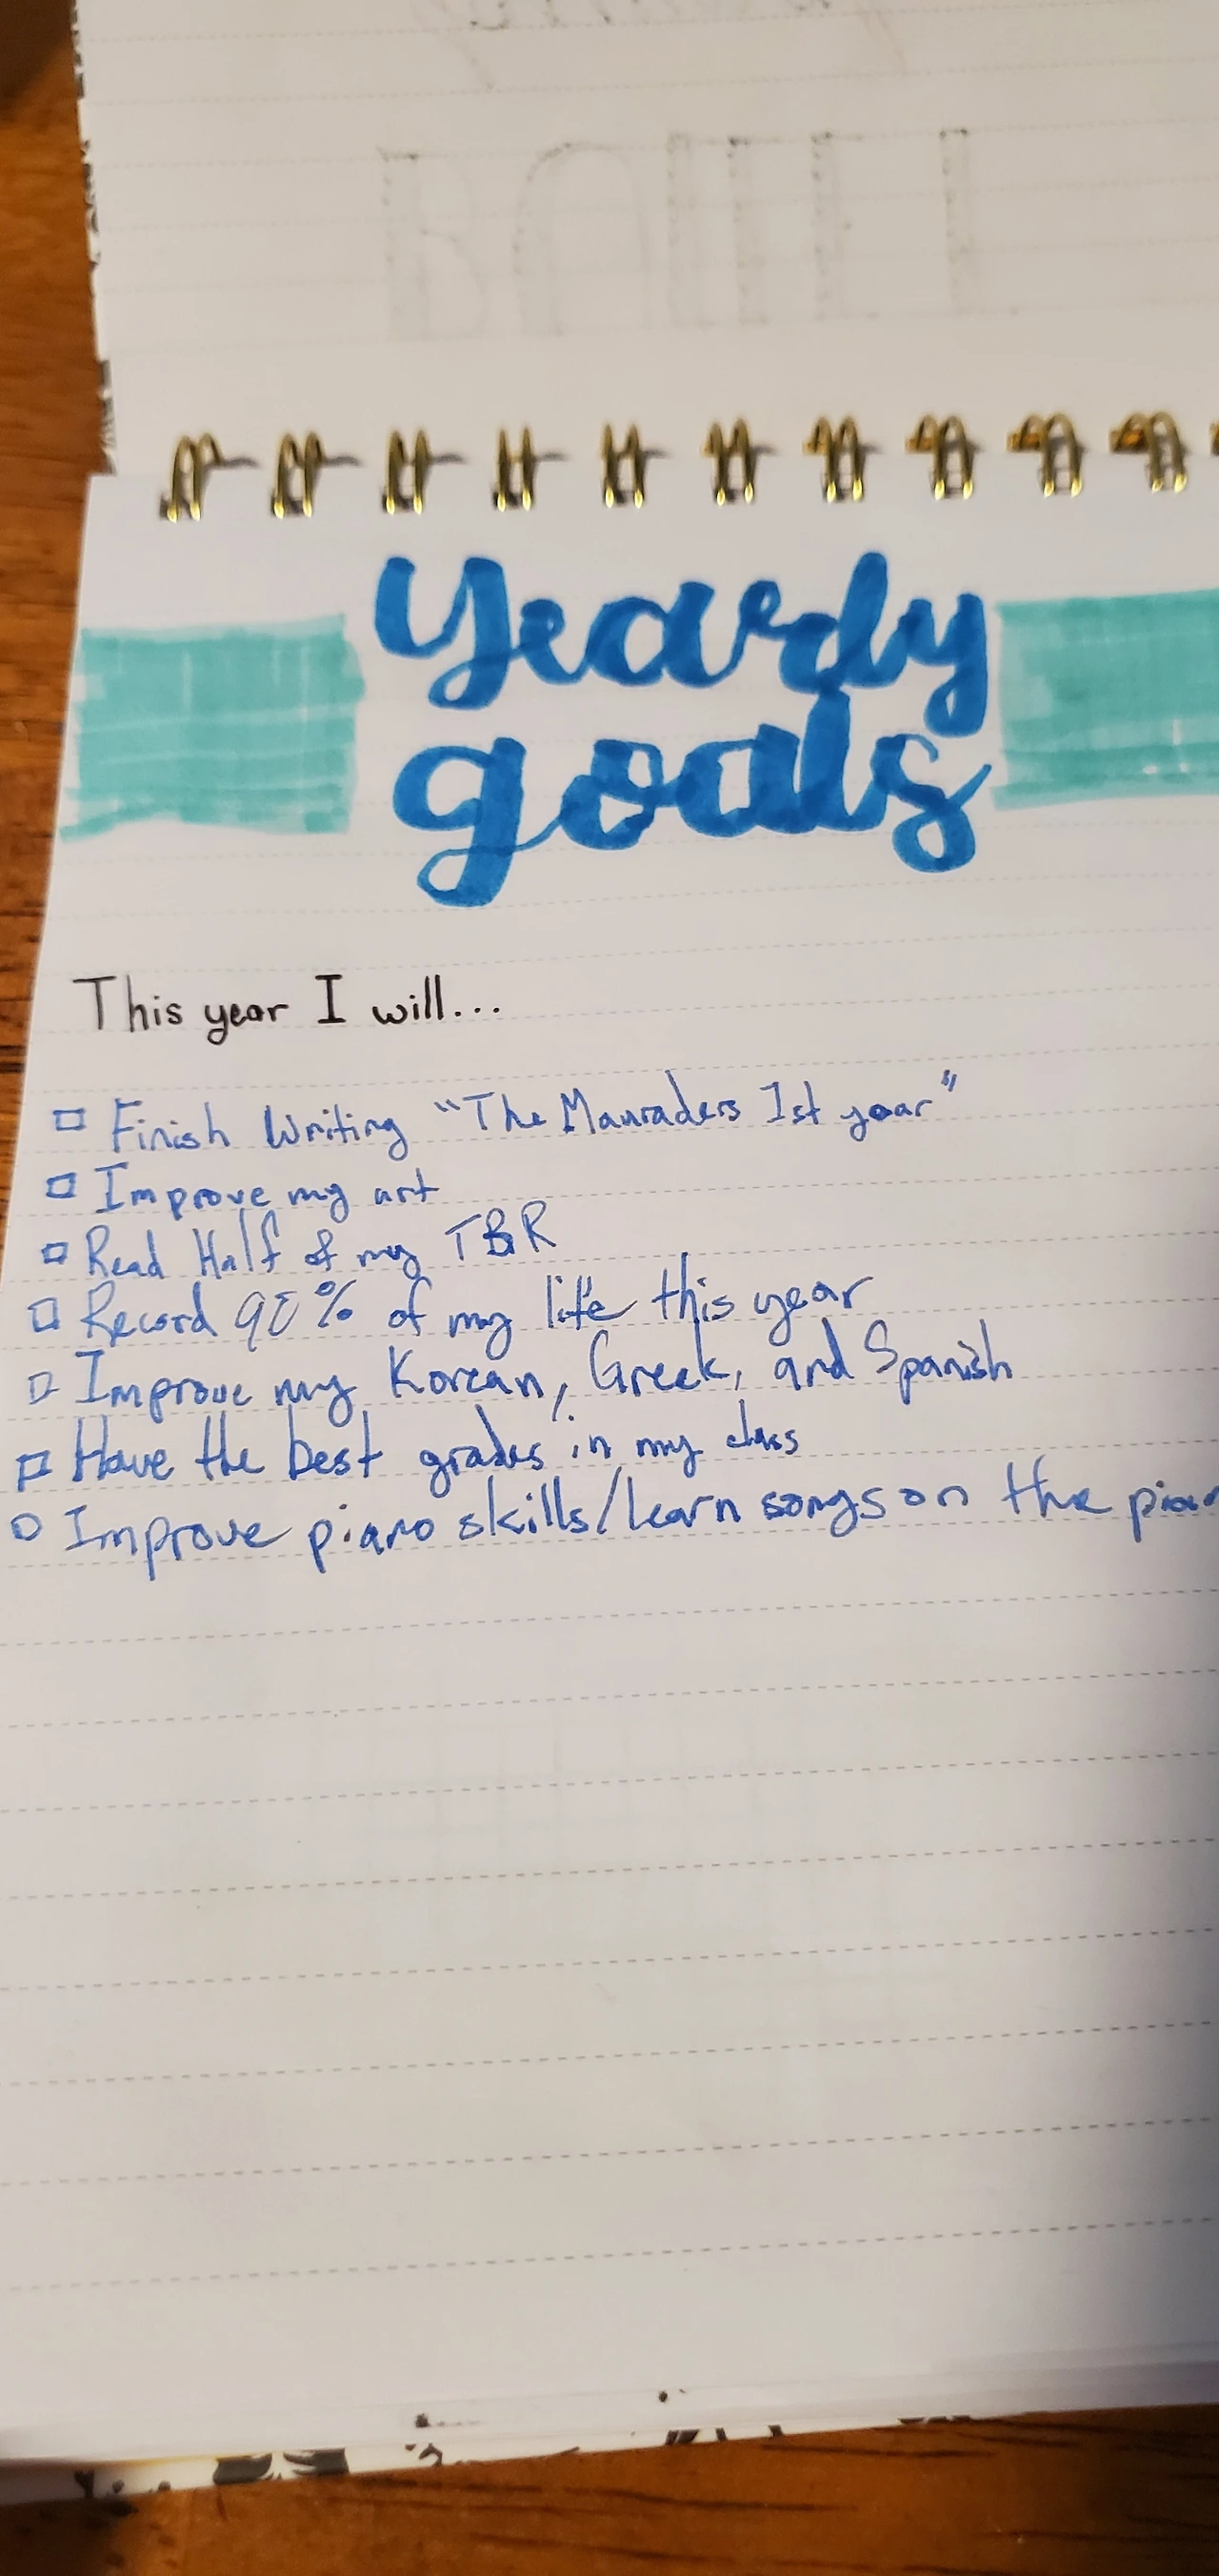 Yearly
goals
This year I will...
Finish Writing "The Mauraders 1st year"
Improve my art
Read Half of my TBR
Record 90% of my life this year
Improve my Korean, Greek, and Spanish
Have the best grades in my class
Improve piano skills/learn songs on the